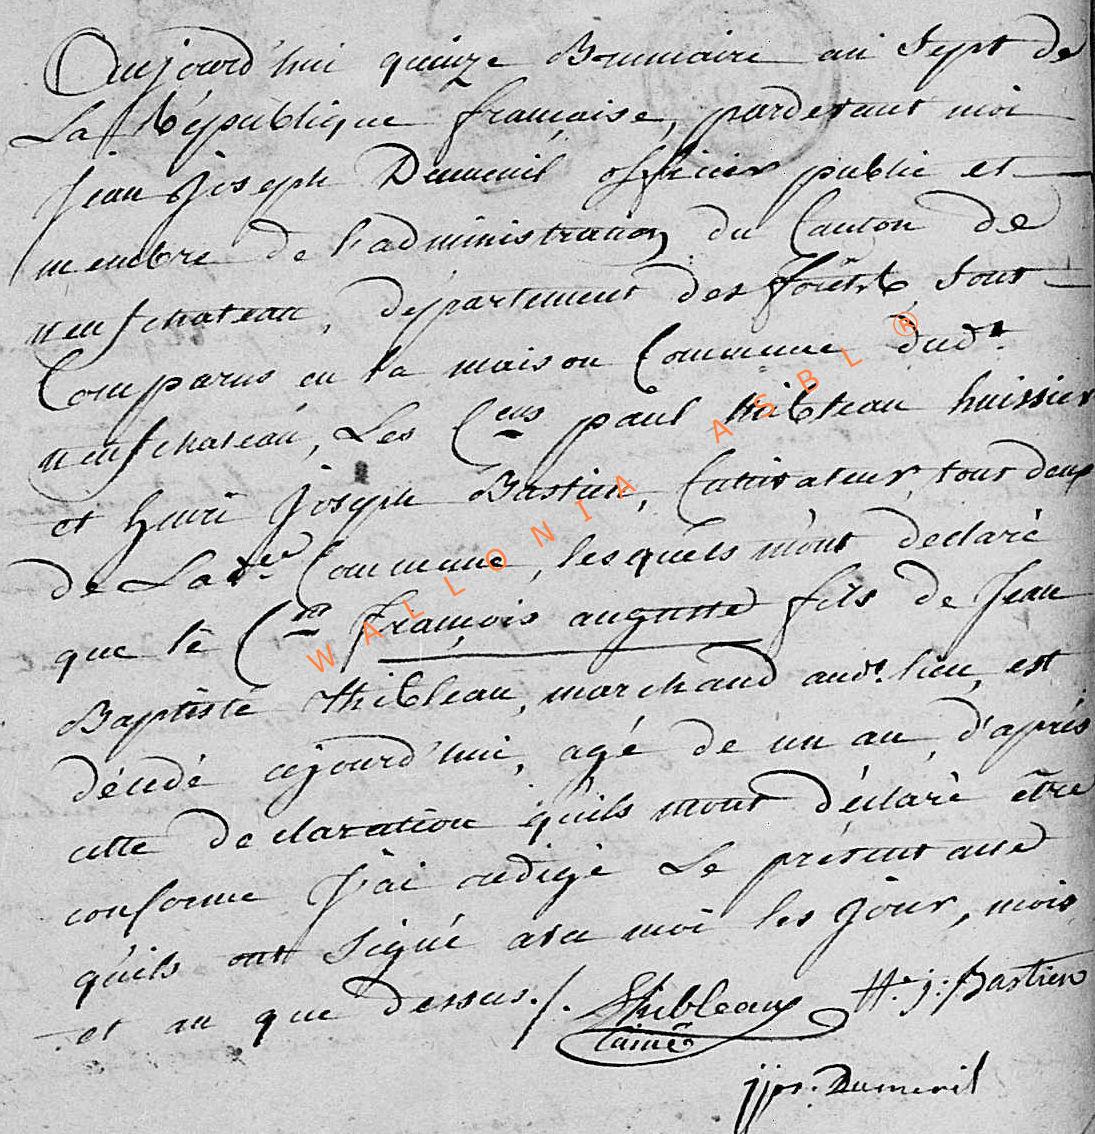 Aujourd'hui quinze Brumaire an Sept de
La République française, pardevant moi
Jean Joseph Dumenil officier public et
membre de l'administration du Canton de
neufchateau, département des forêts, Sont
Comparus en la maison Commune dud.t
neufchateau, Les C.ens paul thibleau huissier
et henri Joseph Bastien, Cultivateur, tous deux
de Lad.e Commune, lesquels m'ont declaré
que le C.en françois auguste fils de Jean
Baptiste thibleau, marchand aud.t lieu, est
décédé cejourd'hui, agé de un an, d'après
cette declaration qu'ils m'ont déclaré être
conforme J'ai redigé Le présent acte
qu'ils ont signé avec moi les jour, mois
et an que dessus./.
Thibleau H. j: Bastien
l'ainé
jjps. Dumenil
WALLONIA ASBL ®